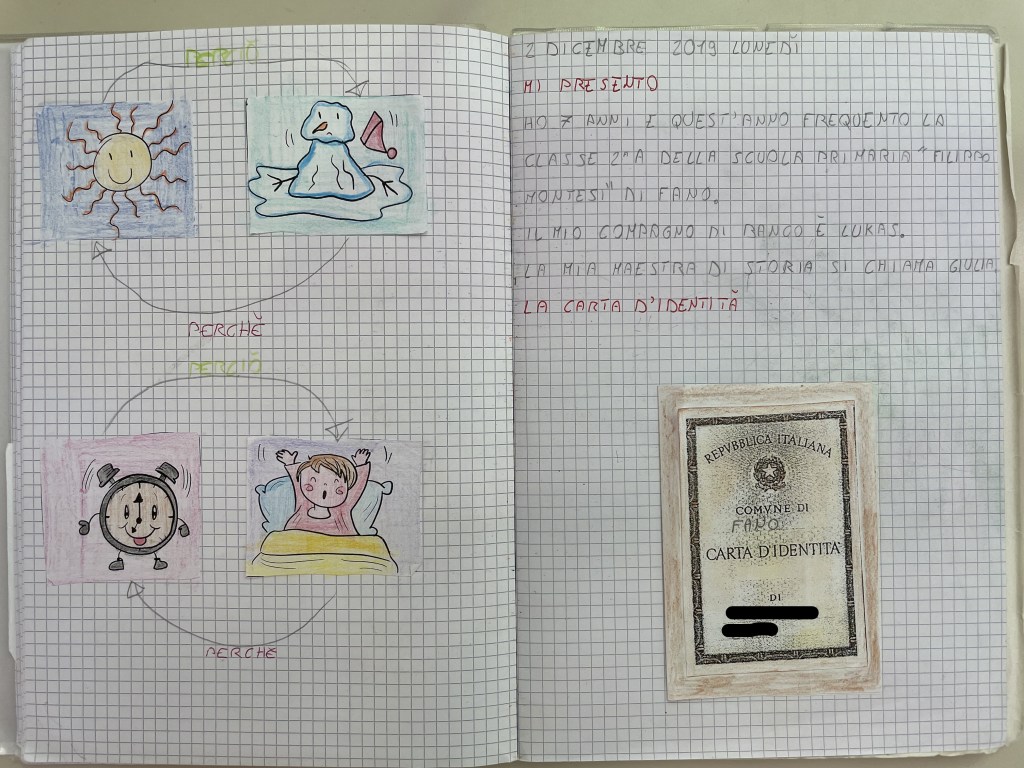 PERCIÒ
PERCHÈ
PERCIÒ
PERCHE
2 DICEMBRE 2019 LUNEDÌ
MI PRESENTO
HO 7 ANNI E QUEST'ANNO FREQUENTO LA
CLASSE 2ªA DELLA SCUOLA PRIMARIA "FILIPPO
MONTESI" DI FANO.
IL MIO COMPAGNO DI BANCO È LUKAS.
LA MIA MAESTRA DI STORIA SI CHIAMA GIULIA
LA CARTA D'IDENTITÀ
REPVBBLICA ITALIANA
COMVNE DI
FANO
CARTA D'IDENTITA'
DI